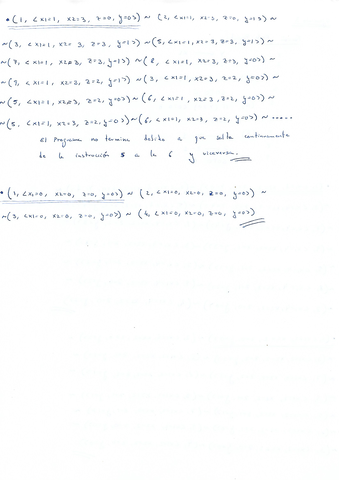 • (1, <x1=1, x2=3, z=0, y=0>) ~ (2, <x1=1, x2=3, z=0, y=1>) ~
~(3, <x1=1, x2=3, z=3, y=1>) ~ (5, <x1=1, x2=3, z=3, y=1>) ~
~(7, <x1=1, x2=3, z=3, y=1>) ~ (8, <x1=1, x2=3, z=3, y=0>) ~
~(9, <x1=1, x2=3, z=2, y=1>) ~ (3, <x1=1, x2=3, z=2, y=0>) ~
~(5, <x1=1, x2=3, z=2, y=0>) ~ (6, <x1=1, x2=3, z=2, y=0>) ~
~(5, <x1=1, x2=3, z=2, y=0>) ~ (6, <x1=1, x2=3, z=2, y=0>) ~ .....
El programa no termina debido a que salta continuamente
de la instrucción 5 a la 6 y viceversa.
• (1, <x1=0, x2=0, z=0, y=0>) ~ (2, <x1=0, x2=0, z=0, y=0>) ~
~(3, <x1=0, x2=0, z=0, y=0>) ~ (4, <x1=0, x2=0, z=0, y=0>)